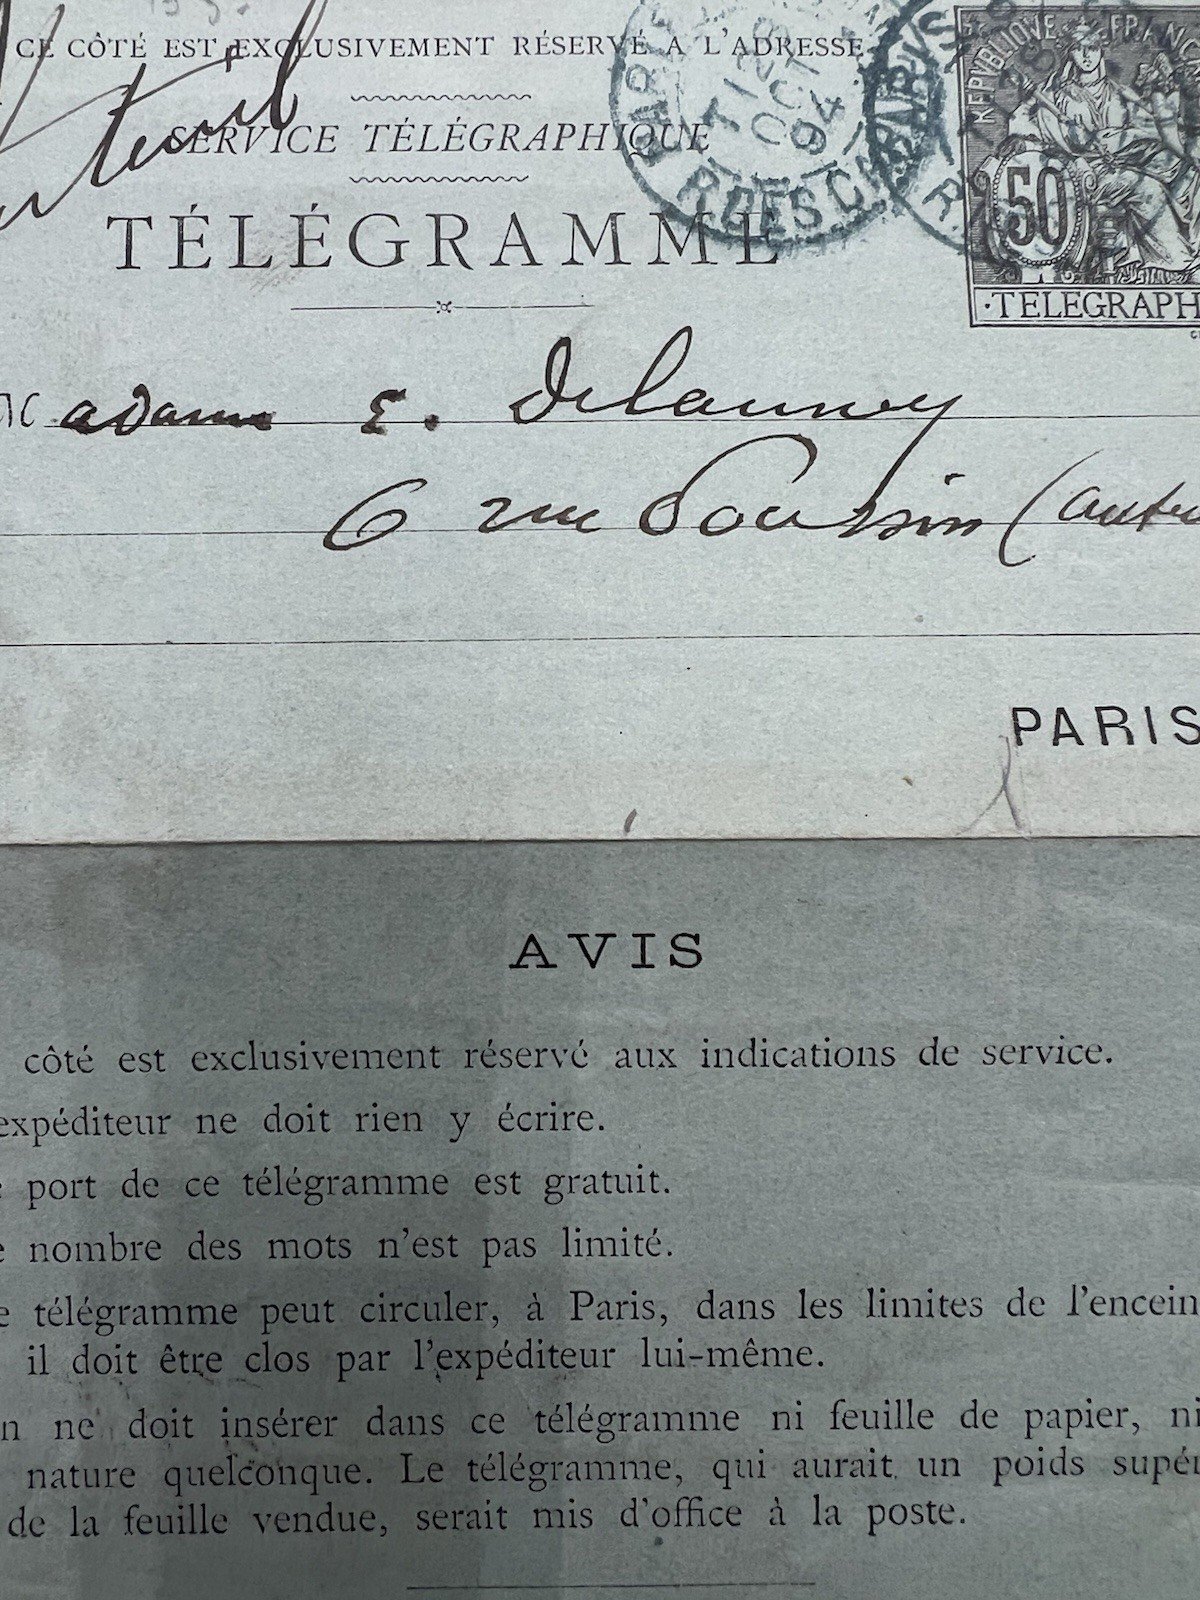 CE CÔTÉ EST EXCLUSIVEMENT RÉSERVÉ A L'ADRESSE
SERVICE TÉLÉGRAPHIQUE
TÉLÉGRAMME
RÉPUBLIQUE FRANÇ
50
·TELEGRAPH
12 OCT 94
R DES C
Madame E. Delaunay
6 rue Poussin (
PARIS
AVIS
côté est exclusivement réservé aux indications de service.
expéditeur ne doit rien y écrire.
port de ce télégramme est gratuit.
nombre des mots n'est pas limité.
e télégramme peut circuler, à Paris, dans les limites de l'encein
il doit être clos par l'expéditeur lui-même.
n ne doit insérer dans ce télégramme ni feuille de papier, ni
nature quelconque. Le télégramme, qui aurait un poids supér
de la feuille vendue, serait mis d'office à la poste.